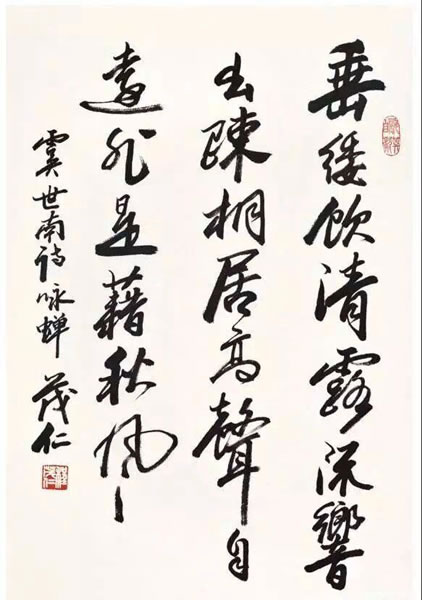 垂緌飲清露流響
出疎桐居高聲自
遠非是藉秋風
虞世南诗咏蝉 茂仁